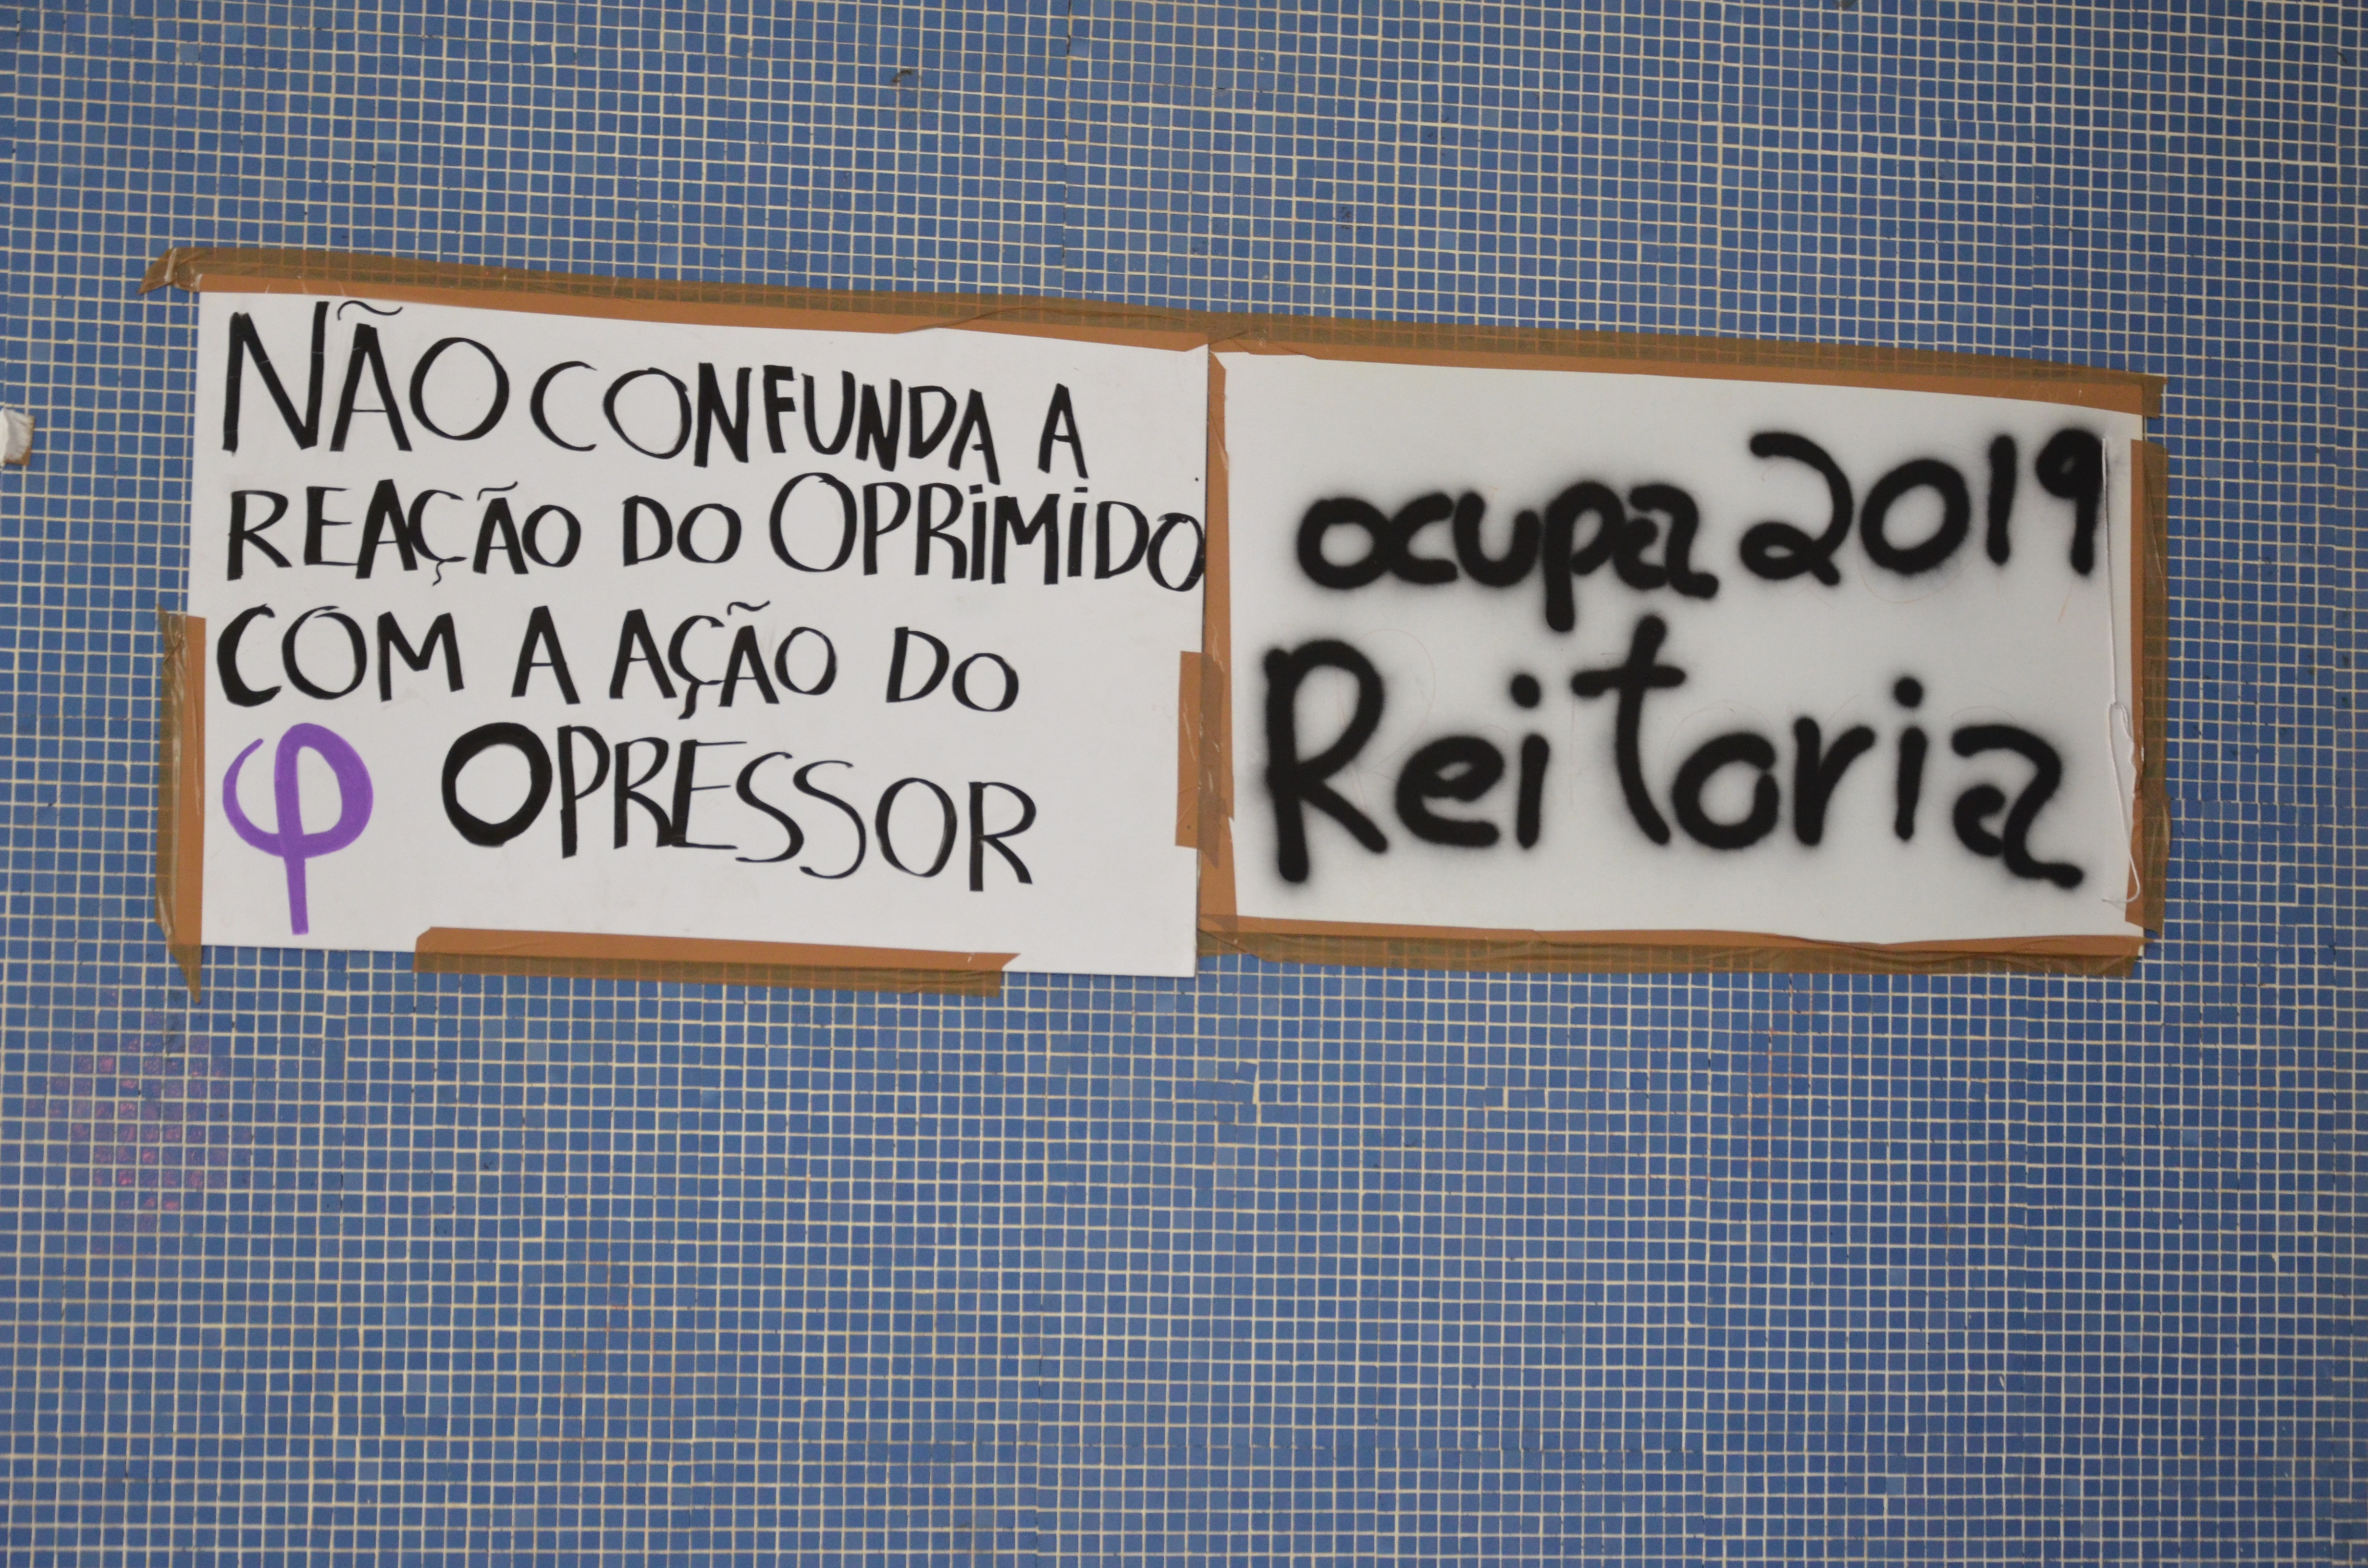 NÃO CONFUNDA A
REAÇÃO DO OPRiMiDO
COM A AÇÃO DO
φ OPRESSOR
ocupa 2019
Reitoria